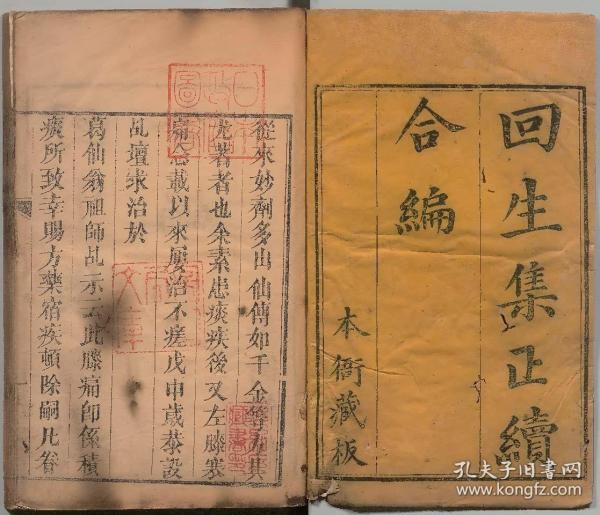 回生集正續
合編
本衙藏板
從來妙劑多出仙傳如千金等方其
尤著者也余素患痰疾後又左膝寒
痛念載以來屢治不瘥戊申歲恭設
乩壇求治於
葛仙翁祖師乩示云此膝痛卽係積
痰所致幸賜方藥宿疾頓除嗣凡眷
孔夫子旧书网
www.kongfz.com